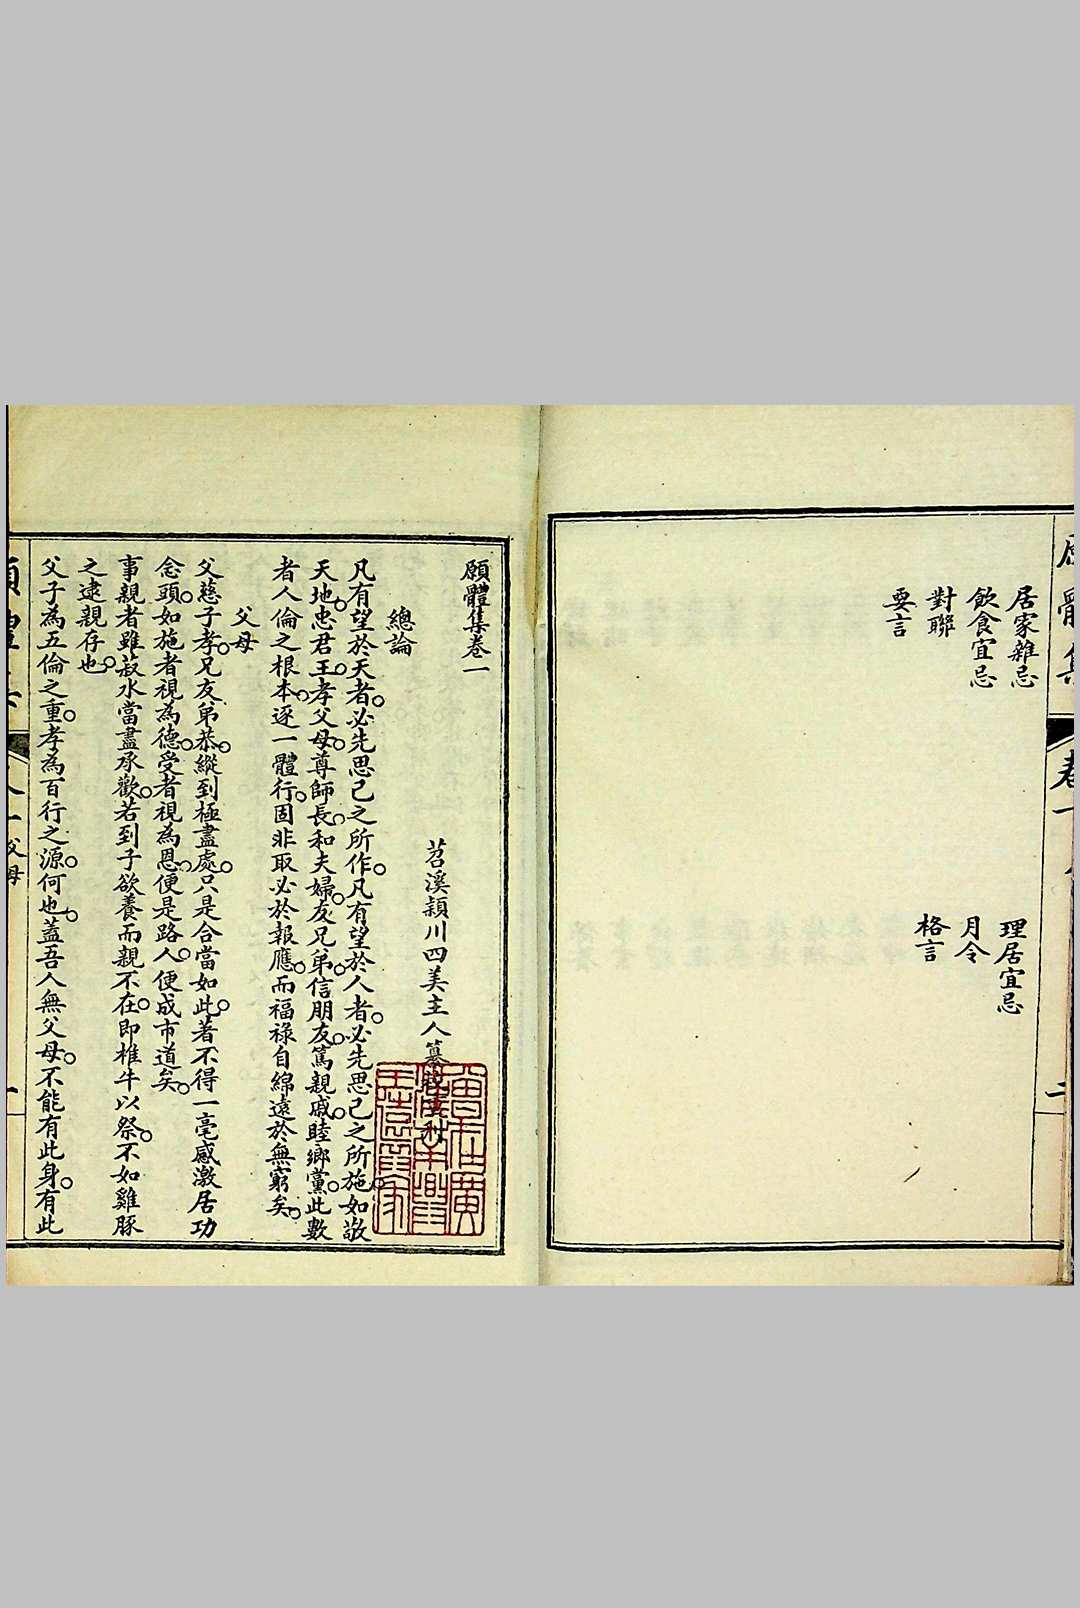 居家雜忌
理居宜忌
飲食宜忌
月令
對聯
格言
要言
願體集卷一
苕溪潁川四美主人纂
總論
凡有望於天者。必先思己之所作。凡有望於人者。必先思己之所施。如敬
天地。忠君王。孝父母。尊師長。和夫婦。友兄弟。信朋友。篤親戚。睦鄉黨。此數
者人倫之根本。逐一體行。固非取必於報應。而福祿自綿遠於無窮矣。
父母
父慈子孝。兄友弟恭。縱到極盡處。只是合當如此。著不得一毫感激居功
念頭。如施者視為德。受者視為恩。便是路人。便成市道矣。
事親者雖菽水當盡承歡。若到子欲養而親不在。即椎牛以祭。不如雞豚
之逮親存也。
父子為五倫之重。孝為百行之源。何也。蓋吾人無父母。不能有此身。有此